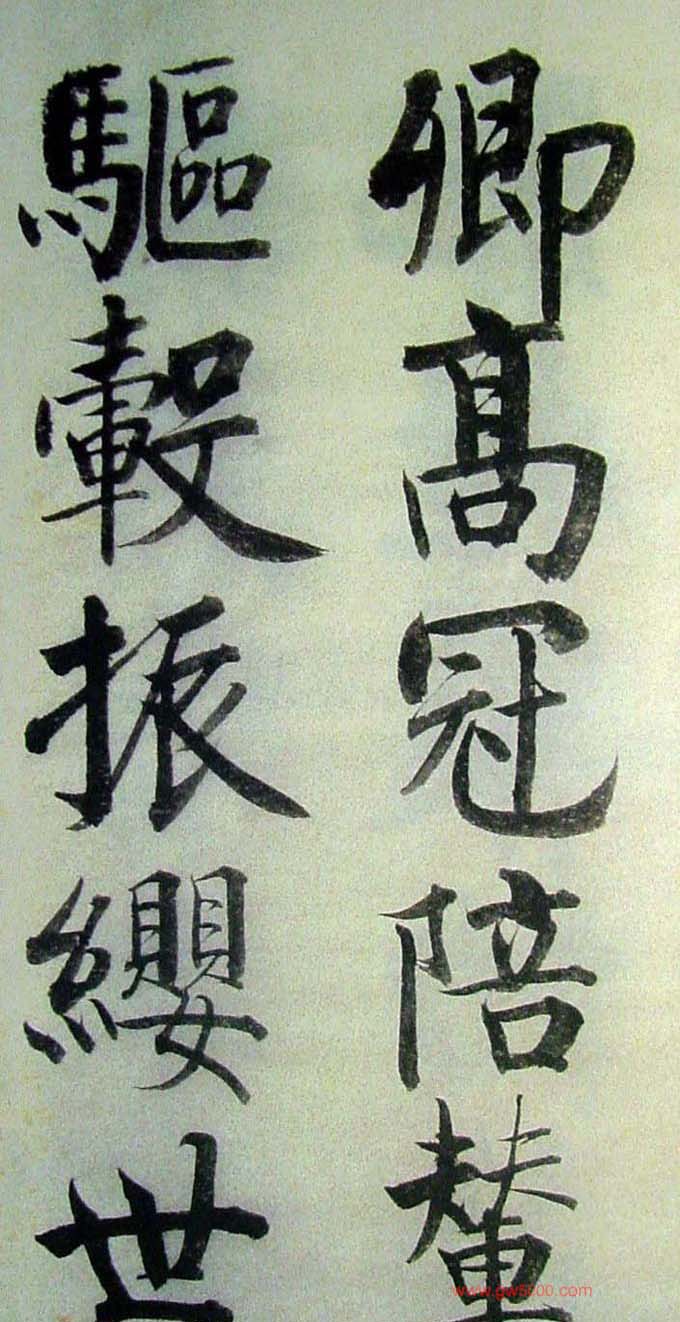 卿高冠陪輦
驅轂振纓世
www.gw8000.com